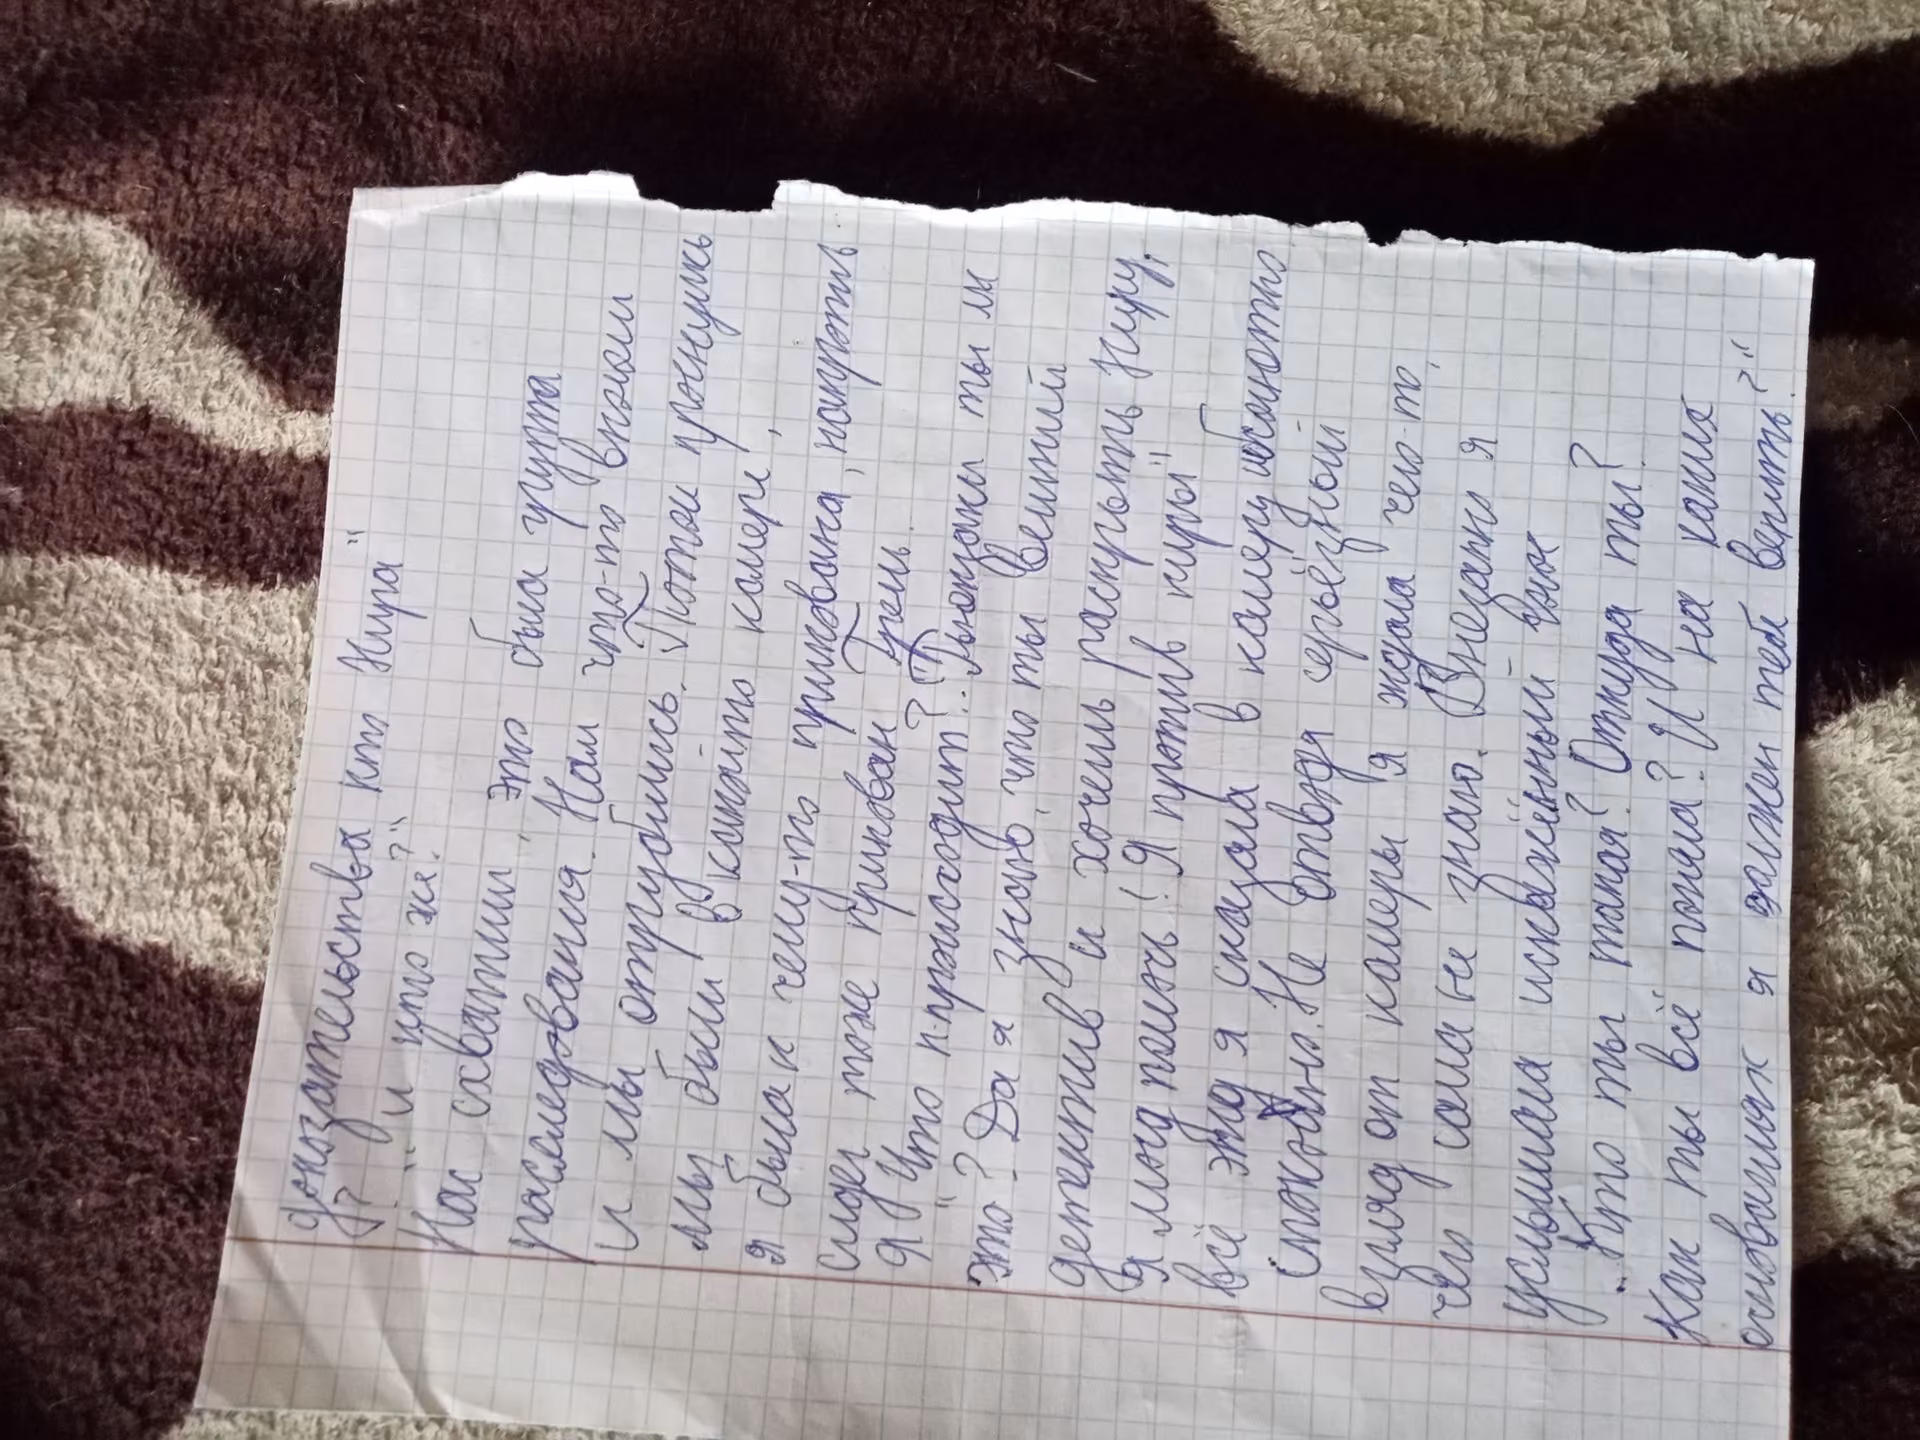 доказательства кто Кира"
? "и кто же?"
Нас схватили, это была група
раследования. Нам что-то вкололи
и мы отрубились. Потом проснулись
мы были в какойто камере,
я была к чему-то прикована, напротив
сидел тоже прикован Грель.
Я "Что п-происходит"? "Рьюзаки ты ли
это? Да я знаю, что ты великий
детектив и хочешь раскрыть Киру,
я могу помочь! Я против киры"
всё это я сказала в камеру
спокойно. Не отводя серьёзный
взгляд от камеры я ждала чего-то,
чего сама не знаю. Внезапно я
услышала искажённый голос
"Кто ты такая? Откуда ты?
Как ты всё поняла? И на каких
основаниях я должен тебе верить?"